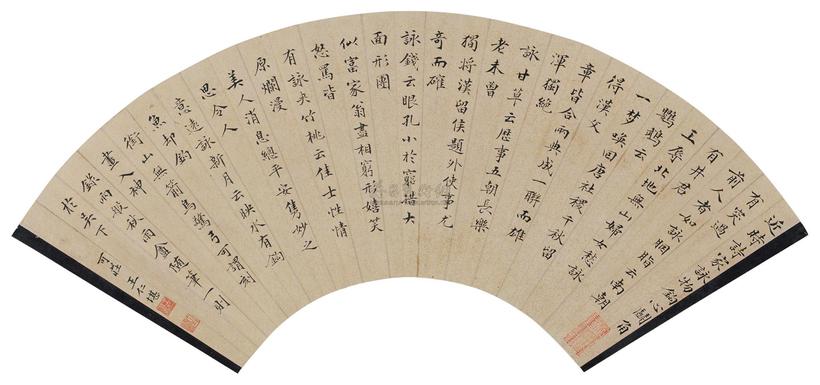 近時詩家詠物鉤心鬥角
有突過
前人者如詠胭脂云南朝
有井君
王辱北地無山婦女愁詠
鸚鵡云
一夢喚回唐社稷千秋留
得漢文
章皆合兩典成一聯而雄
渾獨絕
詠甘草云歷事五朝長樂
老未曾
獨將漢留侯題外使事尤
奇而確
詠錢云眼孔小於窮措大
面形團
似富家翁盡相窮形嬉笑
怒罵皆
有詠夾竹桃云佳士性情
原爛漫
美人消息總平安雋妙之
思令人
意遠詠新月云映水有鉤
魚却釣
銜山無箭鳥驚弓可謂刻
畫入神
錄兩般秋雨盦隨筆一則
於吳下
可莊王仁堪